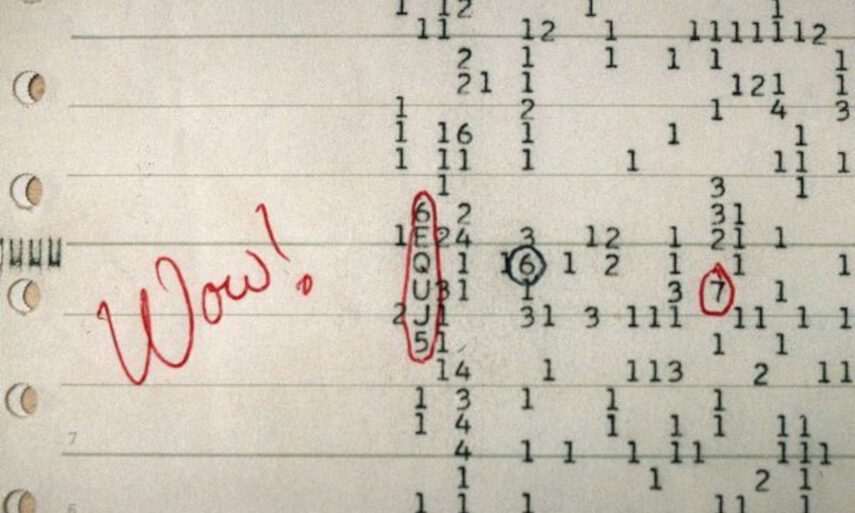 1 12 1 1
11 12 1 1111112
2 1 1 1 1 1
21 1 121 1
1 2 1 4 3
1 16 1 1 1
1 11 1 1 11 1
1 3 1
6 2 31
1E24 3 12 1 21 1
Q 1 16 1 2 1 1 1
U31 1 3 7 1
2J1 31 3 111 11 1 1
51 1 1
14 1 113 2 11
1 3 1 1 1
1 4 1 1 1 11
7 4 1 1 1 11 111
1 1 2 1
6 1 1 1 11 1
Wow!